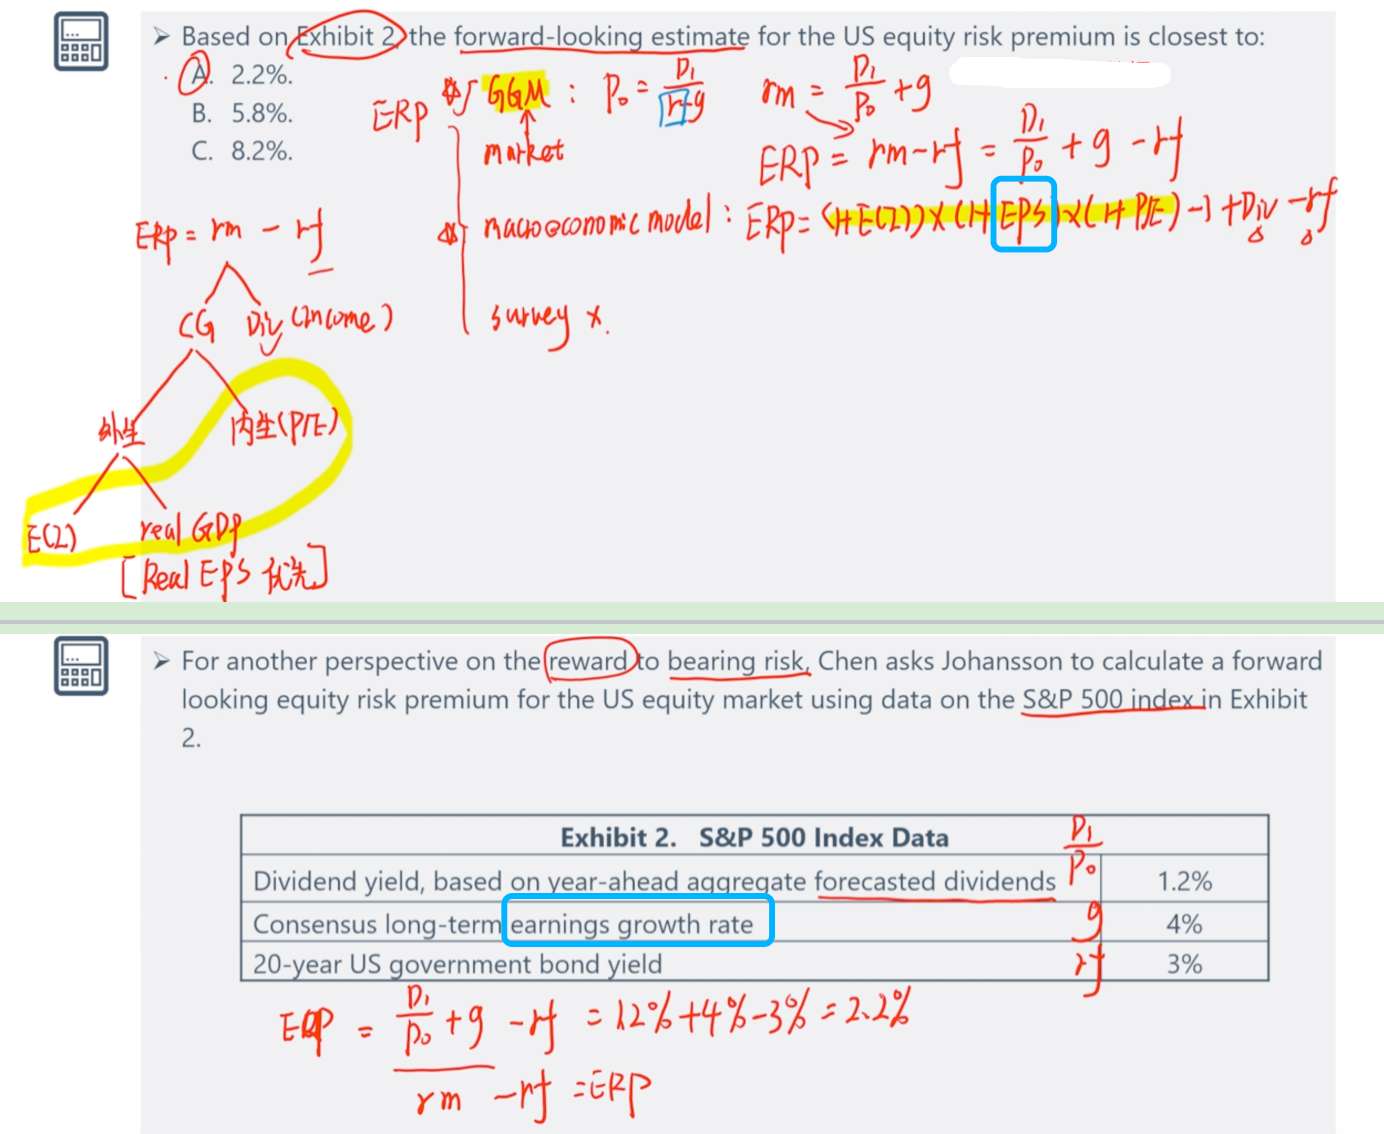 ➢ Based on Exhibit 2, the forward-looking estimate for the US equity risk premium is closest to:
A. 2.2%.
B. 5.8%.
C. 8.2%.
ERP
GGM : P₀ = D₁ / r-g
rm = D₁/P₀ + g
market
ERP = rm-rf = D₁/P₀ + g - rf
macroeconomic model : ERP = (1+E(I)) x (1+ EPS) x (1+ P/E) -1 + Div - rf
survey x.
ERP = rm - rf
CG Div (Income)
外生 内生(P/E)
E(I) real GDP
[Real EPS 优先]
➢ For another perspective on the reward to bearing risk, Chen asks Johansson to calculate a forward
looking equity risk premium for the US equity market using data on the S&P 500 index in Exhibit
2.
Exhibit 2. S&P 500 Index Data
Dividend yield, based on year-ahead aggregate forecasted dividends D₁/P₀ 1.2%
Consensus long-term earnings growth rate g 4%
20-year US government bond yield rf 3%
ERP = D₁/P₀ + g - rf = 1.2% + 4% - 3% = 2.2%
rm - rf = ERP